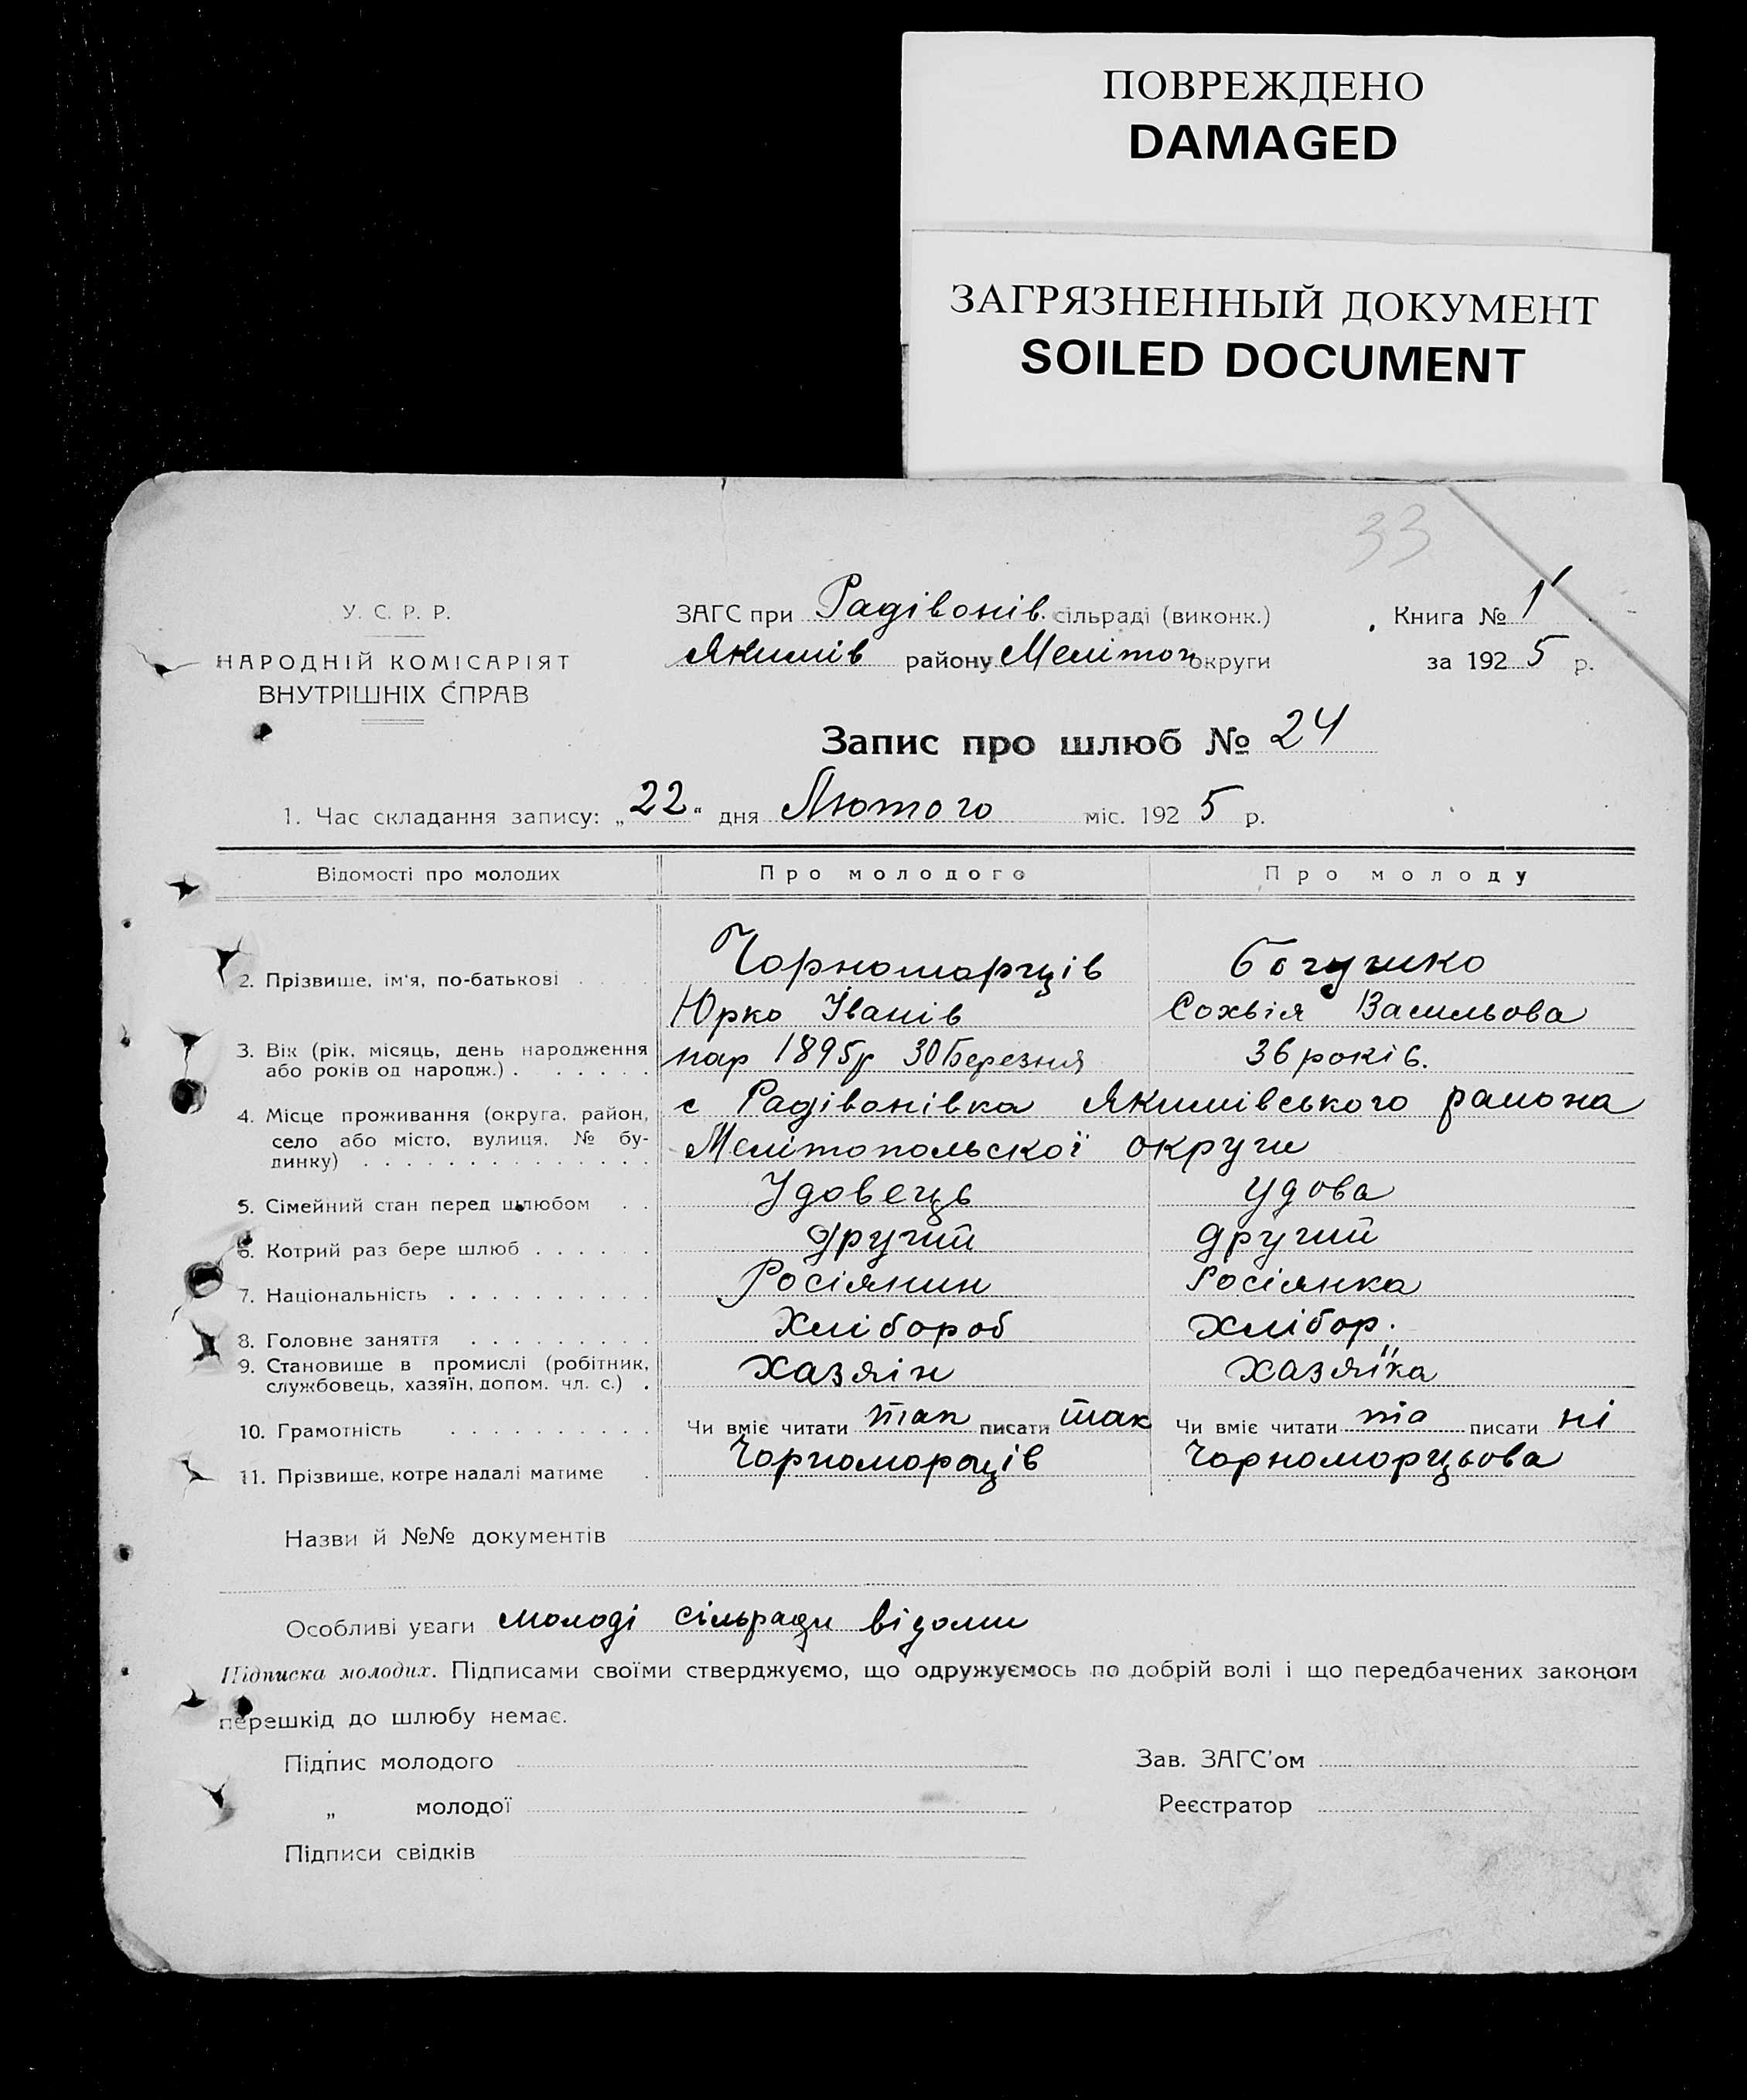 ПОВРЕЖДЕНО
DAMAGED
ЗАГРЯЗНЕННЫЙ ДОКУМЕНТ
SOILED DOCUMENT
33
У. С. Р. Р.
НАРОДНІЙ КОМІСАРІЯТ
ВНУТРІШНІХ СПРАВ
ЗАГС при Радівонів. сільраді (виконк.)
Якимів району Мелітоп округи
Книга № 1
за 1925 р.
Запис про шлюб № 24
1. Час складання запису: „22“ дня Лютого міс. 1925 р.
Відомості про молодих Про молодого Про молоду
2. Прізвище, ім'я, по-батькові Чорноморців Богушко
Юрко Іванів Сохвія Васильова
3. Вік (рік, місяць, день народження або років од народж.) нар 1895р 30 Березня 36 років.
4. Місце проживання (округа, район, село або місто, вулиця, № будинку) с Радівонівка Якимівського района
Мелітопольскої округи
5. Сімейний стан перед шлюбом Удовець Удова
6. Котрий раз бере шлюб другий другий
7. Національність Росіянин Росіянка
8. Головне заняття Хлібороб Хлібор.
9. Становище в промислі (робітник, службовець, хазяїн, допом. чл. с.) Хазяін Хазяїка
10. Грамотність Чи вміє читати так писати так Чи вміє читати писати ні
11. Прізвище, котре надалі матиме Чорноморців Чорноморцьова
Назви й №№ документів
Особливі уваги молоді сільради відоми
Підписка молодих. Підписами своїми стверджуємо, що одружуємось по добрій волі і що передбачених законом
перешкід до шлюбу немає.
Підпис молодого Зав. ЗАГС'ом
„ молодої Реєстратор
Підписи свідків